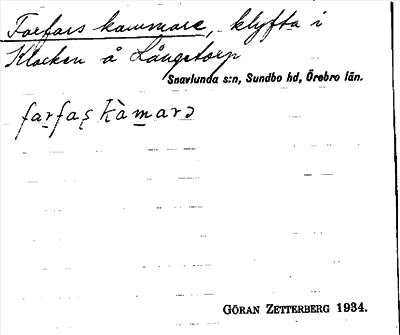 Farfars kammare, klyfta i
Klacken å Långstorp
Snavlunda s:n, Sundbo hd, Örebro län.
farfaʂ kàmarɔ
GÖRAN ZETTERBERG 1934.